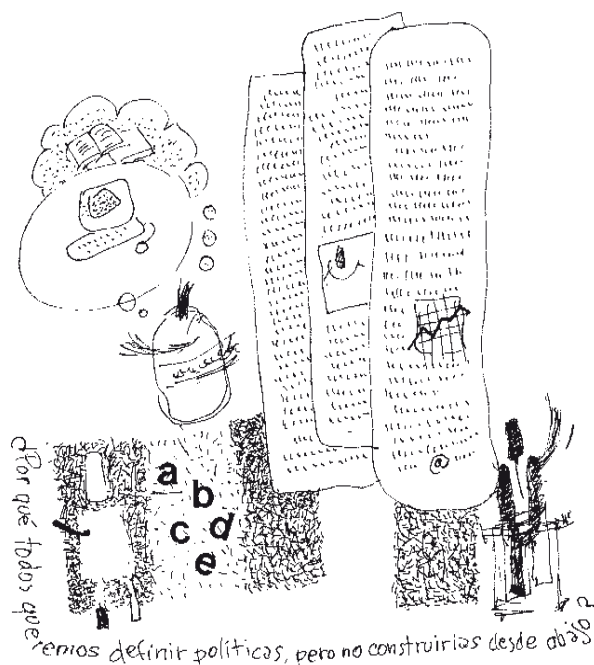 @
a
b
c d
e
¿Por qué todos queremos definir políticas, pero no construirlas desde abajo?